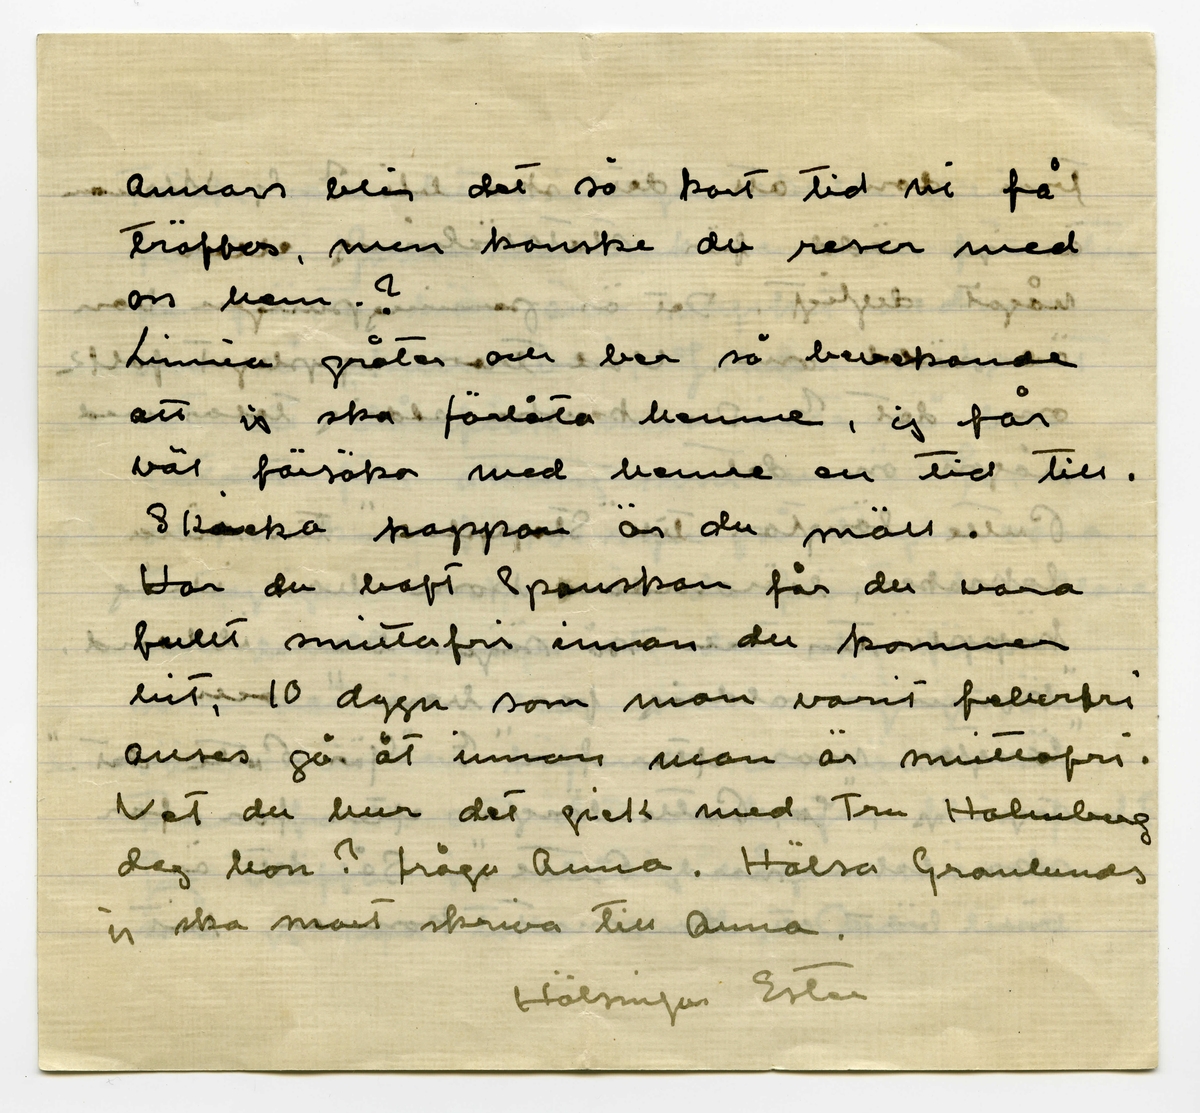 annars blir det så kort tid vi få
träffas, men kanske du reser med
oss hem.?
Linnéa gråter och ber så bevekande
att jg ska förlåta henne, jg får
väl försöka med henne en tid till.
Skicka kappan är du snäll.
Har du haft Spanskan får du vara
fullt smittofri innan du kommer
hit, 10 dygn som man varit feberfri
anses gå åt innan man är smittofri.
Vet du hur det gick med Fru Holmberg
dog hon? fråga Anna. Hälsa Granlunds
jg ska snart skriva till Anna.
Hälsingar Ester